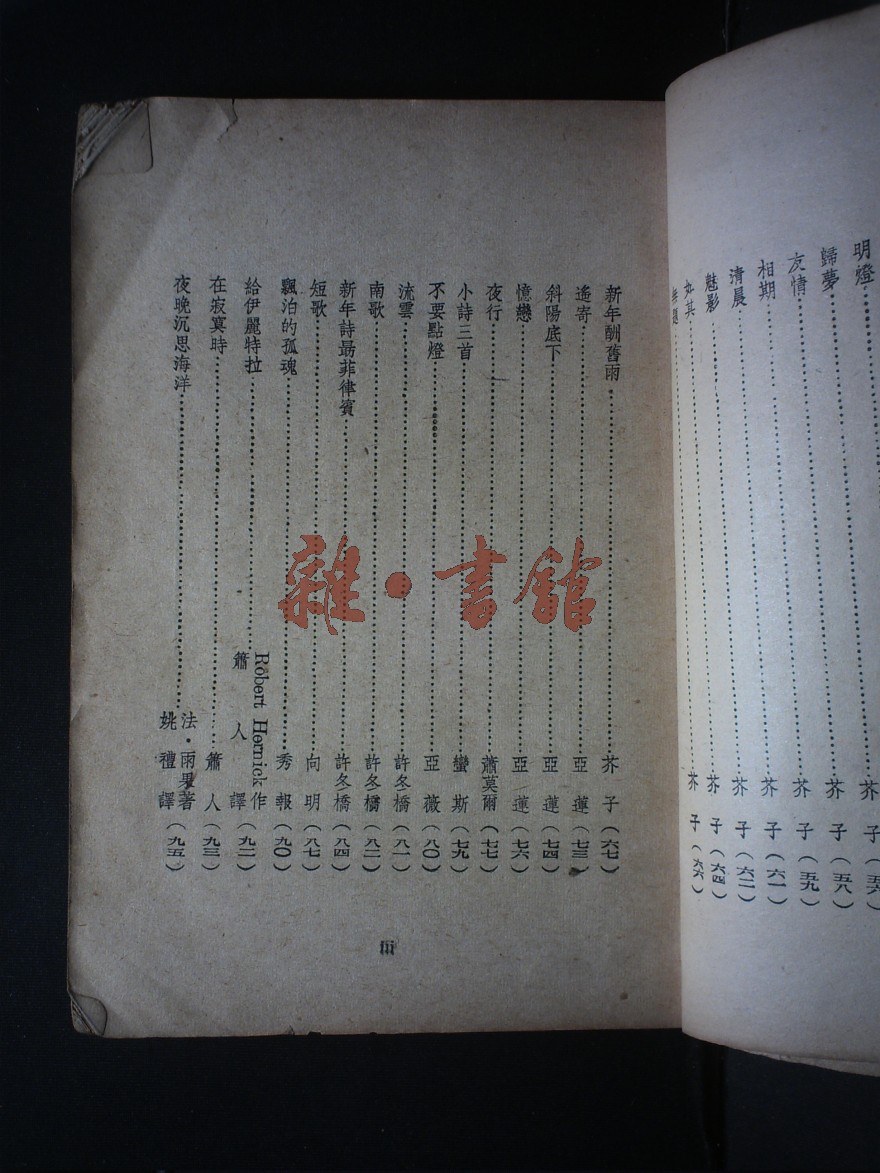 明燈……芥子(五六)
歸夢……芥子(五八)
友情……芥子(五九)
相期……芥子(六一)
清晨……芥子(六二)
魅影……芥子(六四)
如其……芥子(六六)
無題
新年酬舊雨……芥子(六七)
遙寄……亞蓮(七三)
斜陽底下……亞蓮(七四)
憶戀……亞蓮(七六)
夜行……蕭莫爾(七七)
小詩三首……蠻斯(七九)
不要點燈……亞薇(八〇)
流雲……許冬橋(八一)
南歌……許冬橋(八二)
新年詩勗菲律賓……許冬橋(八四)
短歌……向明(八七)
飄泊的孤魂……秀報(九〇)
給伊麗特拉……Robert Hernick作
蕭人譯(九一)
在寂寞時……蕭人(九三)
夜晚沉思海洋……法·雨果著
姚禮譯(九五)
iii
雜·書館